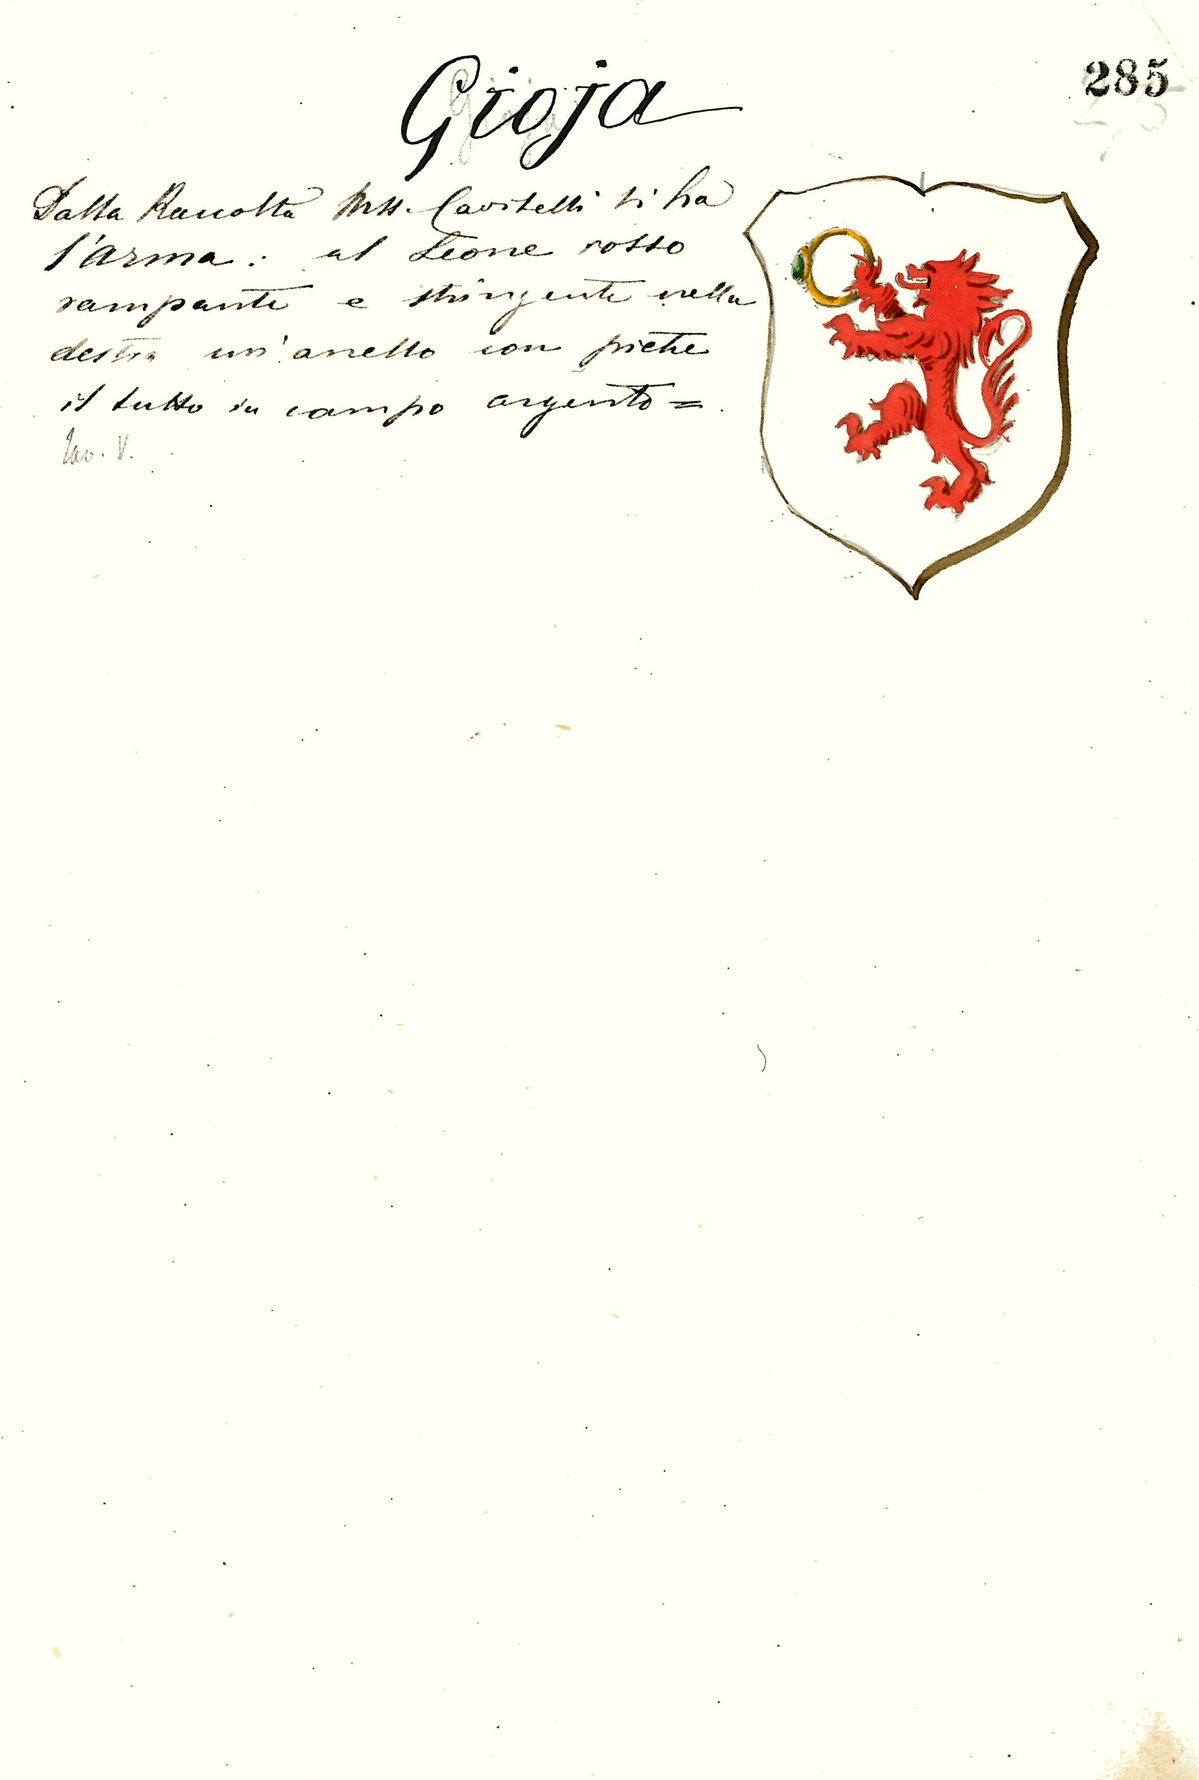 285
Gioja
Dalla Raccolta Mss. Cavitelli si ha
l'arma: al Leone rosso
rampante e stringente nella
destra un'anello con pietre
il tutto in campo argento=.
Tav. V.